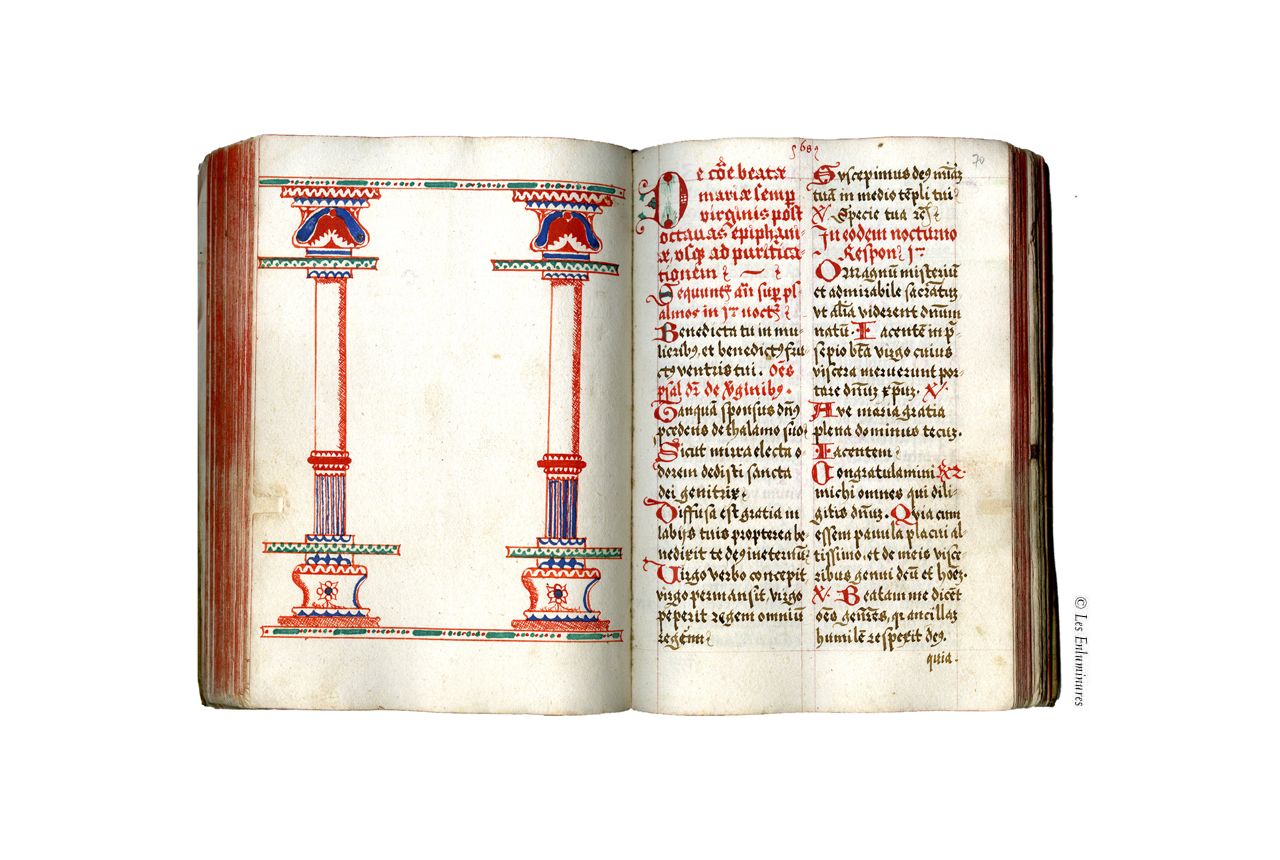 68
70
De cõe beatæ
mariæ semp
virginis post
octavas epiphani
æ, vsq ad purifica-
tionem
Sequunt añ sup ps
almos in 1º noct
Benedicta tu in mu-
lieribꝫ, et benedictꝫ fru
ctꝫ ventris tui. oẽs
psal dr̃ de v̉ginibꝫ.
Tanquã sponsus dñs
pcedens de thalamo suo
Sicut mirra electa o
dorem dedisti sancta
dei genitrix
Diffusa est gratia in
labijs tuis propterea be
nedixit te deꝫ in eternũ
Virgo verbo concepit
virgo permansit, virgo
peperit regem omniũ
regẽm
Suscepimus deꝫ miãꝫ
tuã in medio tẽpli tui
V. Specie tua
In eodem nocturno
Respon 1ᵐ
O Magnũ misteriũ
et admirabile sacrãtuꝫ
vt alĩa viderent dñum
natũ. Iacentẽ in p̃
sepio bt̃a virgo cuius
viscera meruerunt por-
tare dñuꝫ xp̃uꝫ. V.
Ave maria gratia
plena dominus tecuꝫ.
Iacentem
Congratulamini R 2
michi omnes qui dili-
gitis dñuꝫ. Quia cum
essem parvula placui al-
tissimo, et de meis visce
ribus genui deũ et hoẽꝫ.
V. Beatam me dicẽt
oẽs genẽes, qı ancillaꝫ
humilẽ respexit deꝫ.
quia.
© Les Enluminures